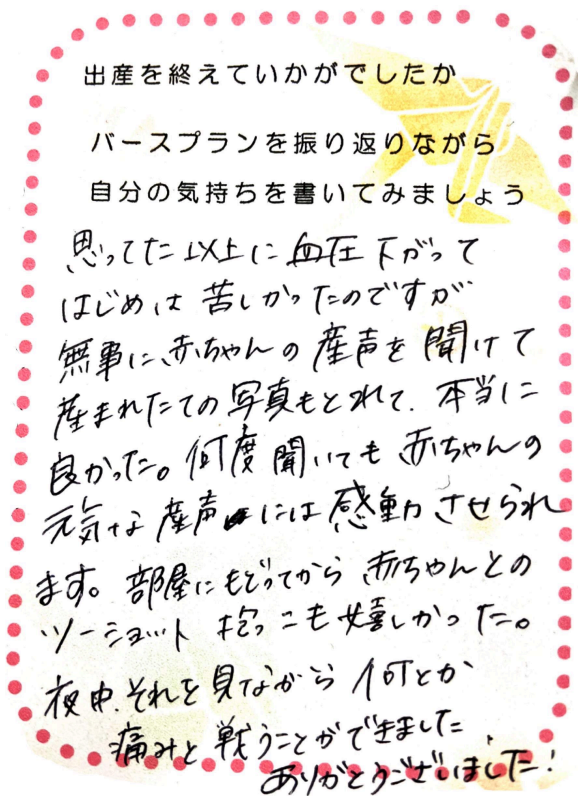 出産を終えていかがでしたか
バースプランを振り返りながら
自分の気持ちを書いてみましょう
思ってた以上に血圧下がって
はじめは苦しかったのですが
無事に赤ちゃんの産声を聞けて
産まれたての写真もとれて、本当に
良かった。何度聞いても赤ちゃんの
元気な産声には感動させられ
ます。部屋にもどってから赤ちゃんとの
ツーショット抱っこも嬉しかった。
夜中、それを見ながら何とか
痛みと戦うことができました
ありがとうございました!